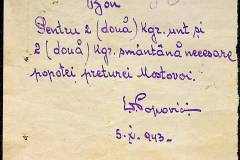 Bon
Pentru 2 (două) kgr. unt și
2 (două) kgr. smântână necesare
popotei preturei Mostovoi.
L Popovici
5. XI. 943.